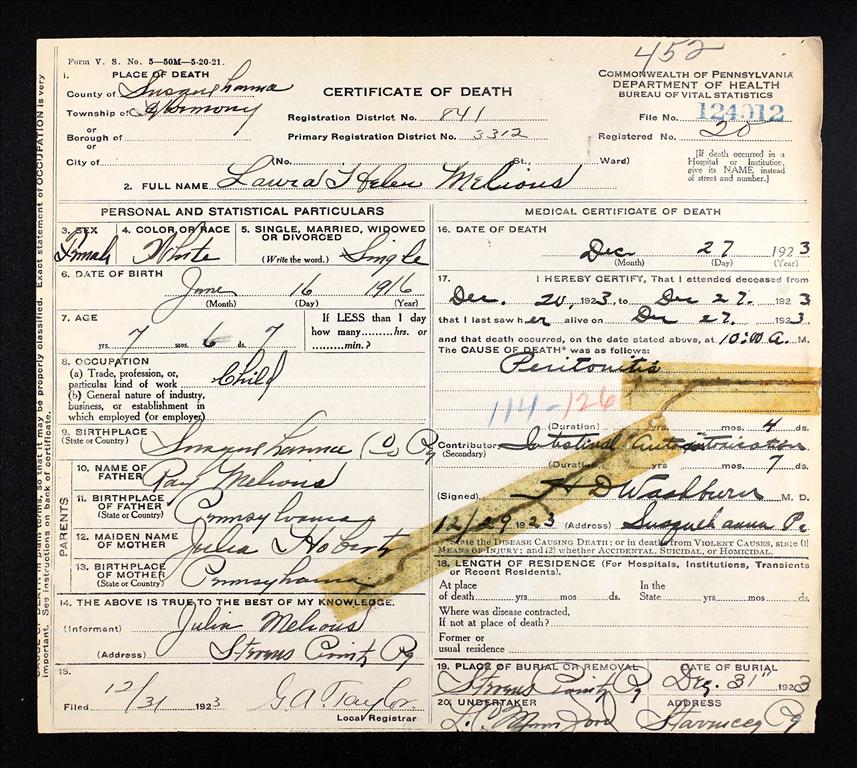 452
Form V. S. No. 5—50M—5-20-21.
1. PLACE OF DEATH
County of Susquehanna
Township of Harmony
or
Borough of
or
City of
CERTIFICATE OF DEATH
Registration District No. 841
Primary Registration District No. 3312
(No. St., Ward)
COMMONWEALTH OF PENNSYLVANIA
DEPARTMENT OF HEALTH
BUREAU OF VITAL STATISTICS
File No. 124012
Registered No. 20
[If death occurred in a Hospital or Institution, give its NAME instead of street and number.]
2. FULL NAME Laura Helen Melious
PERSONAL AND STATISTICAL PARTICULARS
3. SEX Female
4. COLOR OR RACE White
5. SINGLE, MARRIED, WIDOWED OR DIVORCED (Write the word.) Single
6. DATE OF BIRTH
June 16 1916
(Month) (Day) (Year)
7. AGE
7 yrs. 6 mos. 7 ds.
If LESS than 1 day how many hrs. or min.?
8. OCCUPATION
(a) Trade, profession, or, particular kind of work Child
(b) General nature of industry, business, or establishment in which employed (or employer)
9. BIRTHPLACE (State or Country) Susquehanna Co Pa
PARENTS
10. NAME OF FATHER Ray Melious
11. BIRTHPLACE OF FATHER (State or Country) Pennsylvania
12. MAIDEN NAME OF MOTHER Julia Hobert
13. BIRTHPLACE OF MOTHER (State or Country) Pennsylvania
14. THE ABOVE IS TRUE TO THE BEST OF MY KNOWLEDGE.
(Informant) Julia Melious
(Address) Stevens Point, Pa
15.
Filed 12/31 1923 G.A. Taylor
Local Registrar
MEDICAL CERTIFICATE OF DEATH
16. DATE OF DEATH
Dec 27 1923
(Month) (Day) (Year)
17. I HEREBY CERTIFY, That I attended deceased from
Dec. 20, 1923, to Dec 27. 1923
that I last saw her alive on Dec 27. 1923.
and that death occurred, on the date stated above, at 10:00 A. M.
The CAUSE OF DEATH* was as follows:
Peritonitis
114-126
(Duration) yrs. mos. 4 ds.
Contributory (Secondary) Intestinal Autointoxication
(Duration) yrs mos. 7 ds.
(Signed) H D Washburn M. D.
12/29 1923 (Address) Susquehanna Pa
*State the DISEASE CAUSING DEATH; or in deaths from VIOLENT CAUSES, state (1) MEANS OF INJURY; and (2) whether ACCIDENTAL, SUICIDAL, or HOMICIDAL.
18. LENGTH OF RESIDENCE (For Hospitals, Institutions, Transients or Recent Residents).
At place of death yrs. mos. ds. In the State yrs. mos. ds.
Where was disease contracted, If not at place of death?
Former or usual residence
19. PLACE OF BURIAL OR REMOVAL Stevens Point, Pa
DATE OF BURIAL Dec. 31" 1923
20. UNDERTAKER
ADDRESS Starrucca Pa
important. See instructions on back of certificate.
CAUSE OF DEATH in plain terms, so that it may be properly classified. Exact statement of OCCUPATION is very